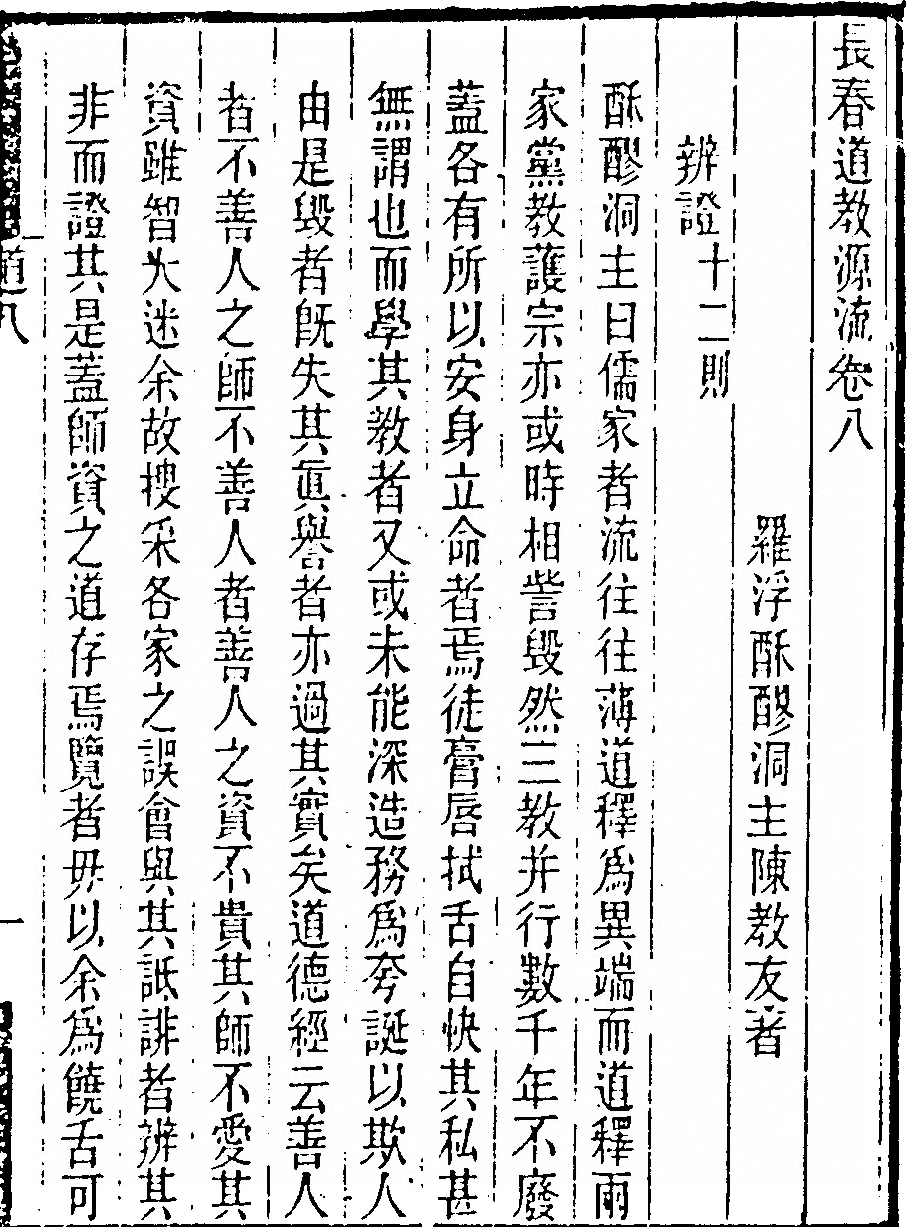 長春道教源流卷八
羅浮酥醪洞主陳教友著
辨證十二則
酥醪洞主曰儒家者流往往薄道釋爲異端而道釋兩
家黨教護宗亦或時相訾毀然三教并行數千年不廢
蓋各有所以安身立命者焉徒膏唇拭舌自快其私甚
無謂也而學其教者又或未能深造務爲夸誕以欺人
由是毀者旣失其眞譽者亦過其實矣道德經云善人
者不善人之師不善人者善人之資不貴其師不愛其
資雖智大迷余故搜采各家之誤會與其詆誹者辨其
非而證其是蓋師資之道存焉覽者毋以余爲饒舌可
道八
一